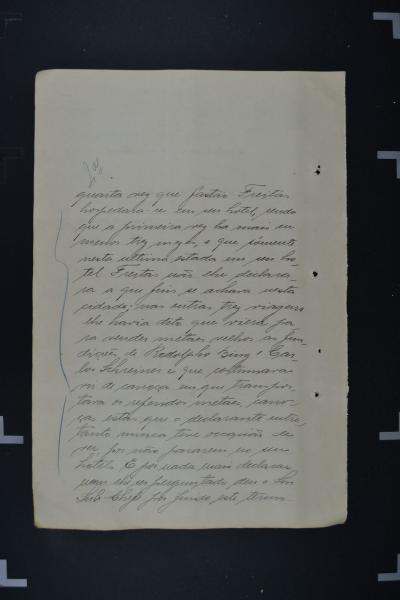 quarta vez que Gastão Freitas
hospedara-se em seu hotel, sendo
que a primeira vez ha mais ou
menos tres mezes, e que sómente
nesta ultima estada em seu ho-
tel Freitas não lhe declara-
ra a que fim se achava nesta
cidade; nas outras tres viagens
lhe havia dito que viera pa-
ra vender metaes velhos as fun-
dições de Rodolpho e Car-
los Schreiner e que costumava
vir de canoa em que transpor-
tava os referidos metaes, cano-
as estas que o declarante entre-
tanto nunca teve occasião de
ver por não pararem no seu
hotel. E por nada mais declarar
nem lhe ser perguntado deu o Snr
Sub-Chefe por findo este termo